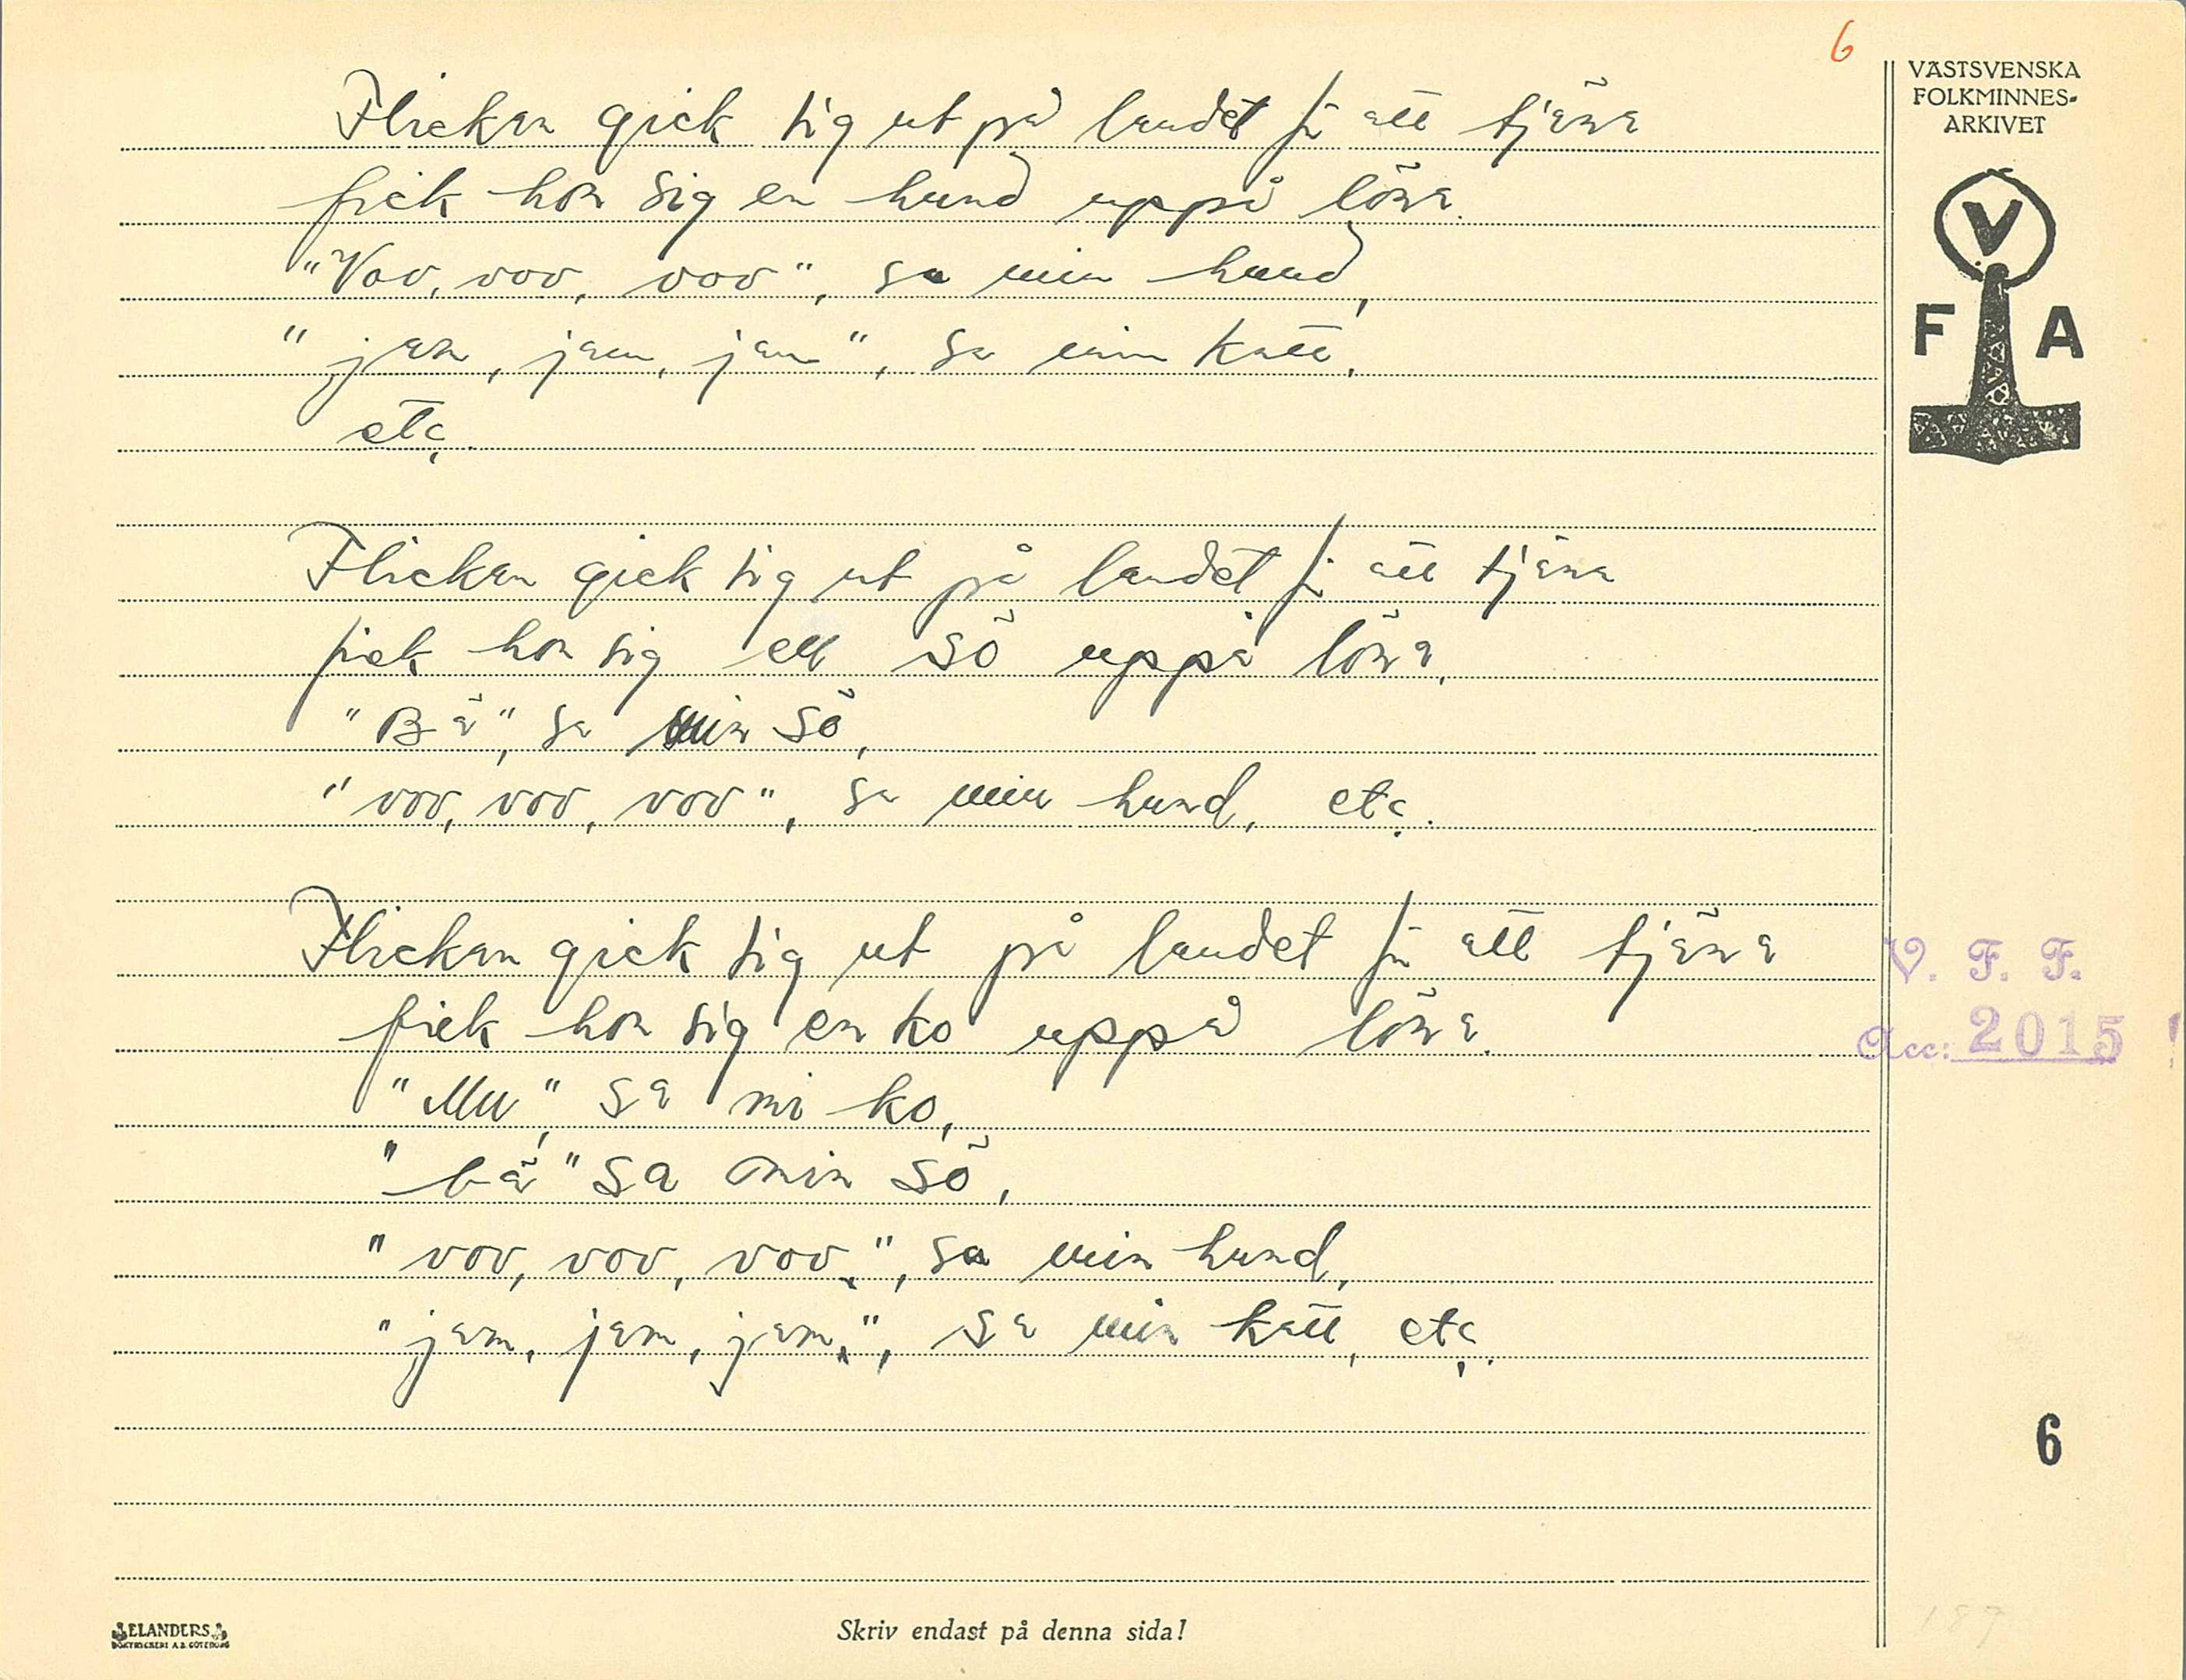 6
VÄSTSVENSKA
FOLKMINNES-
ARKIVET
V
F A
Flickan gick sig ut på landet fö att tjäna
fick hon sig en hund uppå löna.
"Vov, vov, vov", sa min hund,
"jam, jam, jam", sa min katt,
etc.
Flickan gick sig ut på landet fö att tjäna
fick hon sig en sö uppå löna,
"Bä", sa min sö,
"vov, vov, vov", sa min hund, etc.
Flickan gick sig ut på landet fö att tjäna
fick hon sig en ko uppå löna.
"Mu", sa mi ko,
"bä" sa min sö,
"vov, vov, vov", sa min hund,
"jam, jam, jam", sa min katt, etc.
V. F. F.
Acc: 2015
6
ELANDERS
BOKTRYCKERI A.B. GÖTEBORG
Skriv endast på denna sida!
187